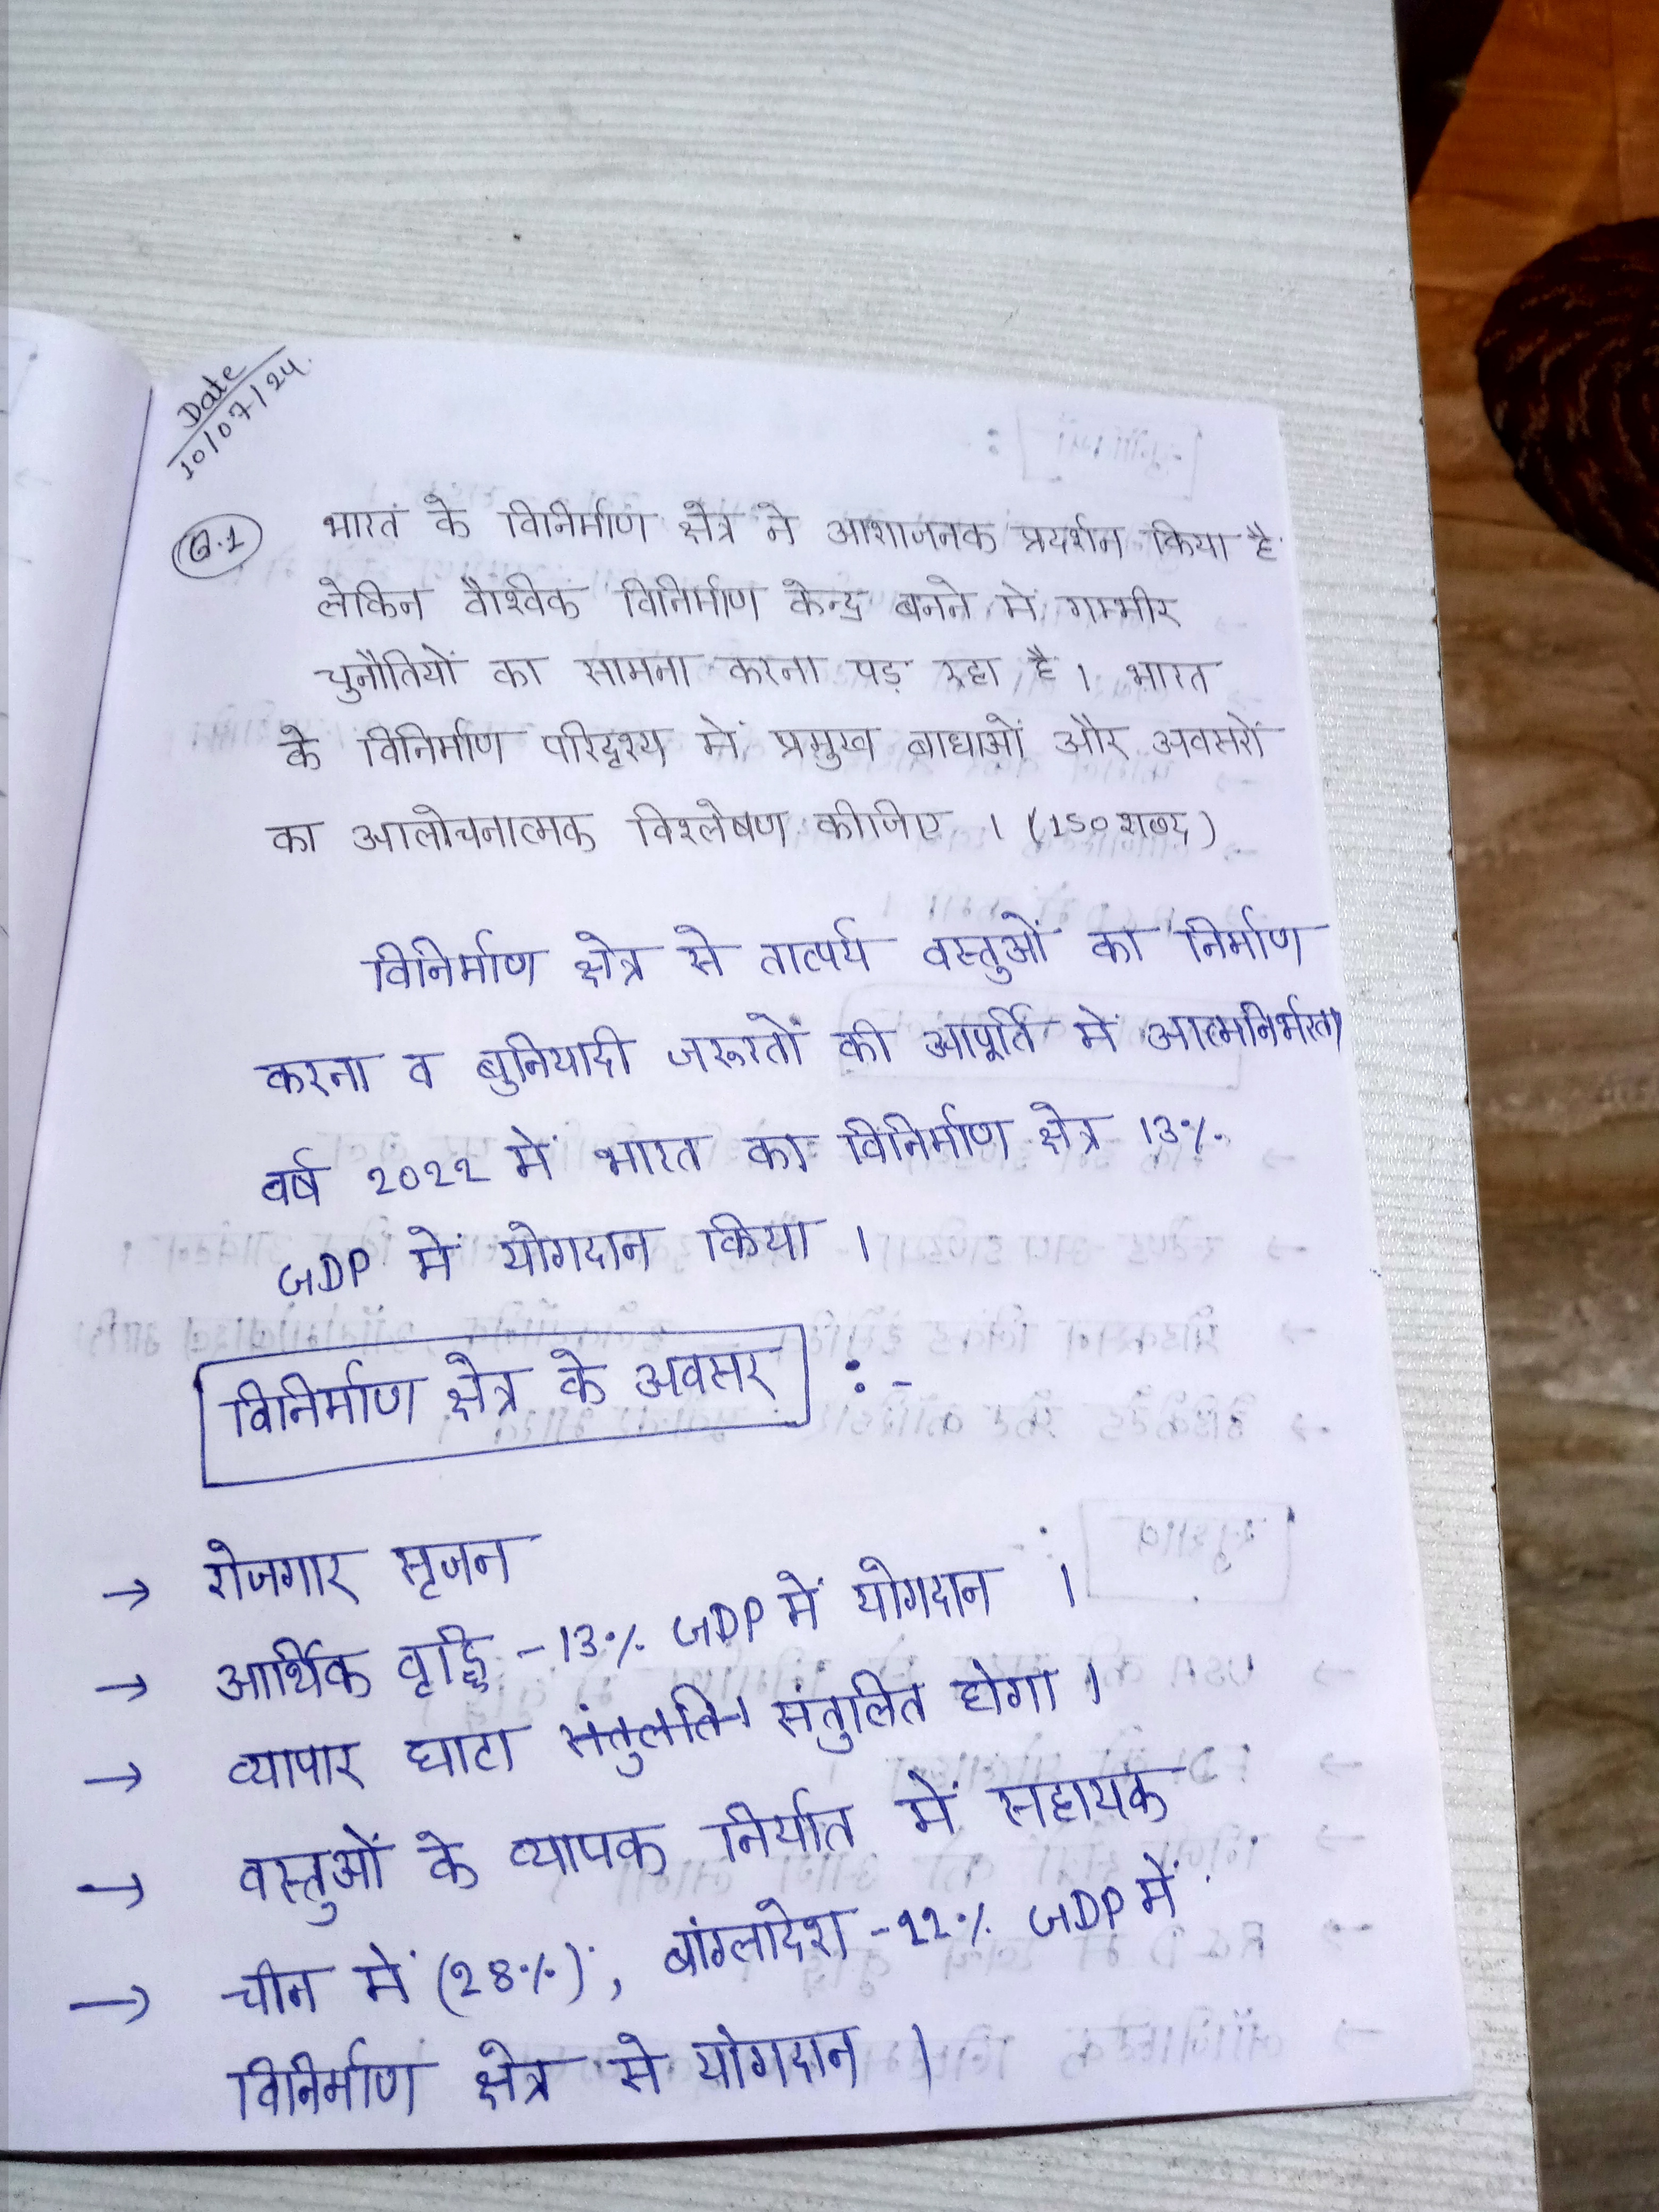 Date
10/07/24.
Q.1 भारत के विनिर्माण क्षेत्र ने आशाजनक प्रदर्शन किया है
लेकिन वैश्विक विनिर्माण केन्द्र बनने में गम्भीर
चुनौतियों का सामना करना पड़ रहा है । भारत
के विनिर्माण परिदृश्य में प्रमुख बाधाओं और अवसरों
का आलोचनात्मक विश्लेषण कीजिए । (150 शब्द)
विनिर्माण क्षेत्र से तात्पर्य वस्तुओं का निर्माण
करना व बुनियादी जरूरतों की आपूर्ति में आत्मनिर्भरता
वर्ष 2022 में भारत का विनिर्माण क्षेत्र 13%
GDP में योगदान किया ।
विनिर्माण क्षेत्र के अवसर :-
→ रोजगार सृजन
→ आर्थिक वृद्धि - 13% GDP में योगदान ।
→ व्यापार घाटा संतुलित होगा ।
→ वस्तुओं के व्यापक निर्यात में सहायक
→ चीन में (28%), बांग्लादेश - 22% GDP में
विनिर्माण क्षेत्र से योगदान ।